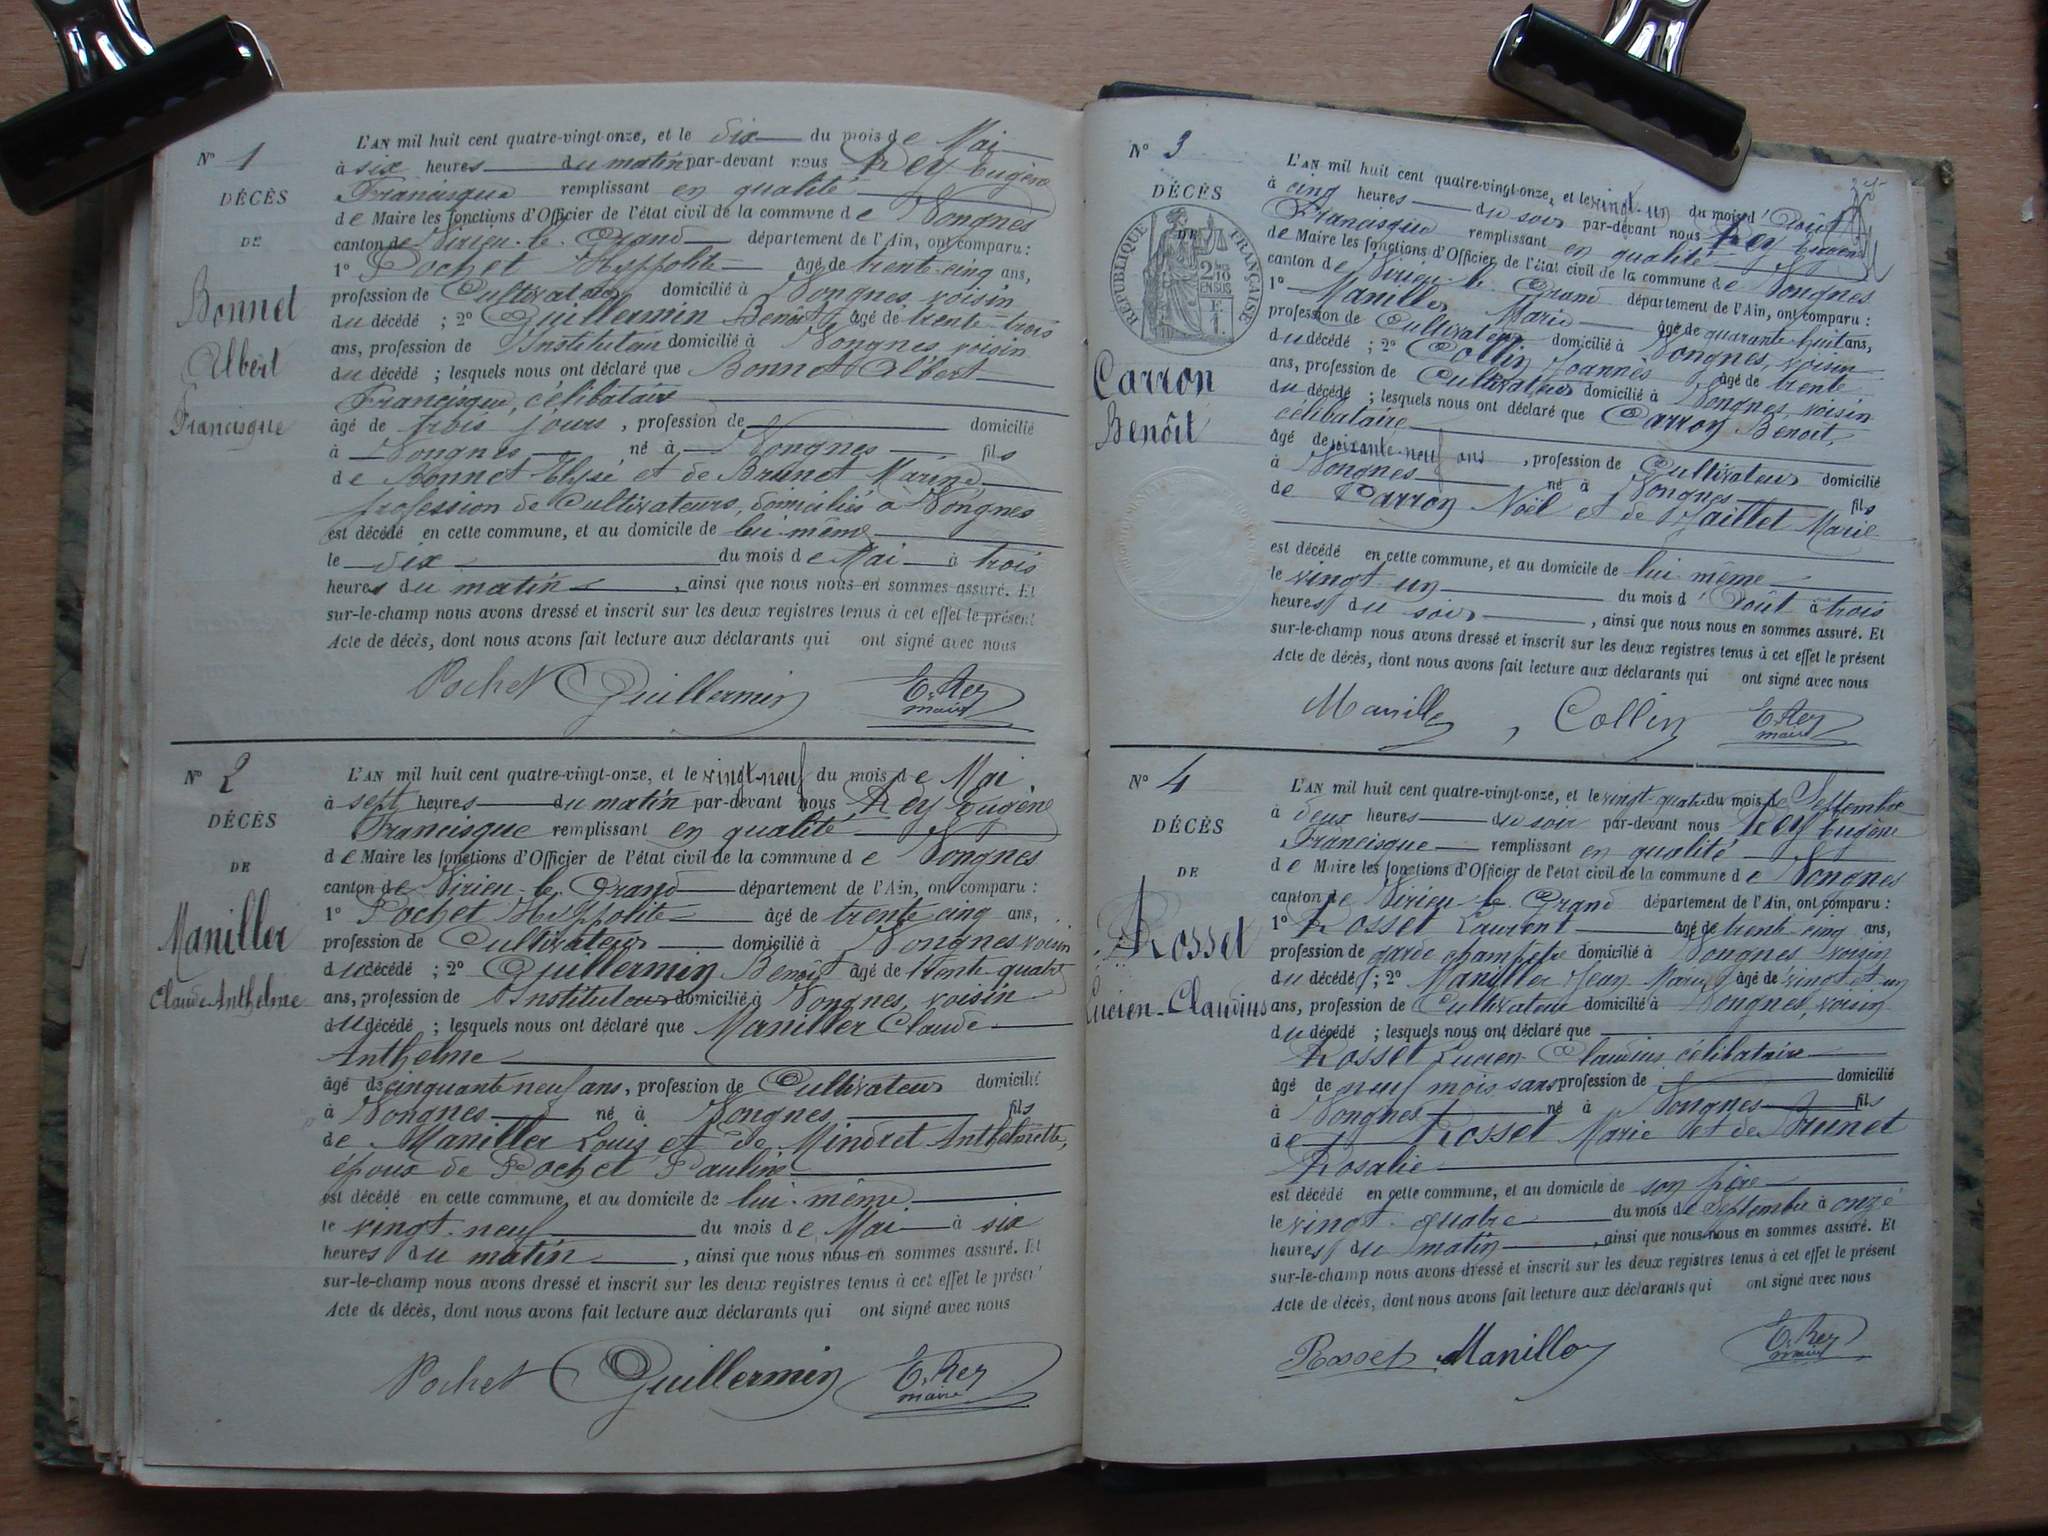 N° 1
DÉCÈS
DE
Bonnet
Albert
Francisque
L'AN mil huit cent quatre-vingt-onze, et le dix du mois de Mai
à six heures du matin par-devant nous Rey Eugène
Francisque remplissant en qualité
de Maire les fonctions d'Officier de l'état civil de la commune de Vongnes
canton de Virieu-le-Grand département de l'Ain, ont comparu :
1° Pochet Hyppolite âgé de trente-cinq ans,
profession de Cultivateur domicilié à Vongnes, voisin
du décédé ; 2° Guillermin Benoît âgé de trente-trois
ans, profession de Instituteur domicilié à Vongnes, voisin
du décédé ; lesquels nous ont déclaré que Bonnet Albert
Francisque, célibataire
âgé de trois jours, profession de domicilié
à Vongnes né à Vongnes fils
de Bonnet Elysé et de Brunet Marine
profession de Cultivateurs, domiciliés à Vongnes
est décédé en cette commune, et au domicile de lui-même
le dix du mois de Mai à trois
heures du matin, ainsi que nous nous en sommes assuré. Et
sur-le-champ nous avons dressé et inscrit sur les deux registres tenus à cet effet le présent
Acte de décès, dont nous avons fait lecture aux déclarants qui ont signé avec nous
Pochet Guillermin E. Rey
maire
N° 2
DÉCÈS
DE
Maniller
Claude Anthelme
L'AN mil huit cent quatre-vingt-onze, et le vingt-neuf du mois de Mai
à sept heures du matin par-devant nous Rey Eugène
Francisque remplissant en qualité
de Maire les fonctions d'Officier de l'état civil de la commune de Vongnes
canton de Virieu-le-Grand département de l'Ain, ont comparu :
1° Pochet Hyppolite âgé de trente cinq ans,
profession de Cultivateur domicilié à Vongnes voisin
du décédé ; 2° Guillermin Benoît âgé de trente-quatre
ans, profession de Instituteur domicilié à Vongnes, voisin
du décédé ; lesquels nous ont déclaré que Maniller Claude
Anthelme
âgé de cinquante neuf ans, profession de Cultivateur domicilié
à Vongnes né à Vongnes fils
de Maniller Louis et de Mindret Anthelmette,
époux de Pochet Pauline
est décédé en cette commune, et au domicile de lui-même
le vingt-neuf du mois de Mai à six
heures du matin, ainsi que nous nous en sommes assuré. Et
sur-le-champ nous avons dressé et inscrit sur les deux registres tenus à cet effet le présent
Acte de décès, dont nous avons fait lecture aux déclarants qui ont signé avec nous
Pochet Guillermin E. Rey
maire
N° 3
DÉCÈS
DE
RÉPUBLIQUE FRANÇAISE
2/10
EN SUS
Carron
Benoît
L'AN mil huit cent quatre-vingt-onze, et le vingt-un du mois d'Août
à cinq heures du soir par-devant nous Rey Eugène
Francisque remplissant en qualité
de Maire les fonctions d'Officier de l'état civil de la commune de Vongnes
canton de Virieu-le-Grand département de l'Ain, ont comparu :
1° Maniller Marie âgé de quarante huit ans,
profession de Cultivateur domicilié à Vongnes, voisin
du décédé ; 2° Collin Joannès âgé de trente
ans, profession de Cultivateur domicilié à Vongnes, voisin
du décédé ; lesquels nous ont déclaré que Carron Benoît,
célibataire
âgé de soixante-neuf ans, profession de Cultivateur domicilié
à Vongnes né à Vongnes fils
de Carron Noël et de Maillet Marie
est décédé en cette commune, et au domicile de lui-même
le vingt-un du mois d'Août à trois
heures du soir, ainsi que nous nous en sommes assuré. Et
sur-le-champ nous avons dressé et inscrit sur les deux registres tenus à cet effet le présent
Acte de décès, dont nous avons fait lecture aux déclarants qui ont signé avec nous
Maniller, Collin E. Rey
maire
N° 4
DÉCÈS
DE
Rosset
Lucien-Claudius
L'AN mil huit cent quatre-vingt-onze, et le vingt-quatre du mois de Septembre
à deux heures du soir par-devant nous Rey Eugène
Francisque remplissant en qualité
de Maire les fonctions d'Officier de l'état civil de la commune de Vongnes
canton de Virieu-le-Grand département de l'Ain, ont comparu :
1° Rosset Laurent âgé de trente cinq ans,
profession de garde champêtre domicilié à Vongnes voisin
du décédé ; 2° Maniller Jean Marie âgé de vingt et un
ans, profession de Cultivateur domicilié à Vongnes, voisin
du décédé ; lesquels nous ont déclaré que
Rosset Lucien Claudius célibataire
âgé de neuf mois sans profession de domicilié
à Vongnes né à Vongnes fils
de Rosset Marie et de Brunet
Rosalie
est décédé en cette commune, et au domicile de son père
le vingt-quatre du mois de Septembre à onze
heures du matin, ainsi que nous nous en sommes assuré. Et
sur-le-champ nous avons dressé et inscrit sur les deux registres tenus à cet effet le présent
Acte de décès, dont nous avons fait lecture aux déclarants qui ont signé avec nous
Rosset Maniller E. Rey
maire